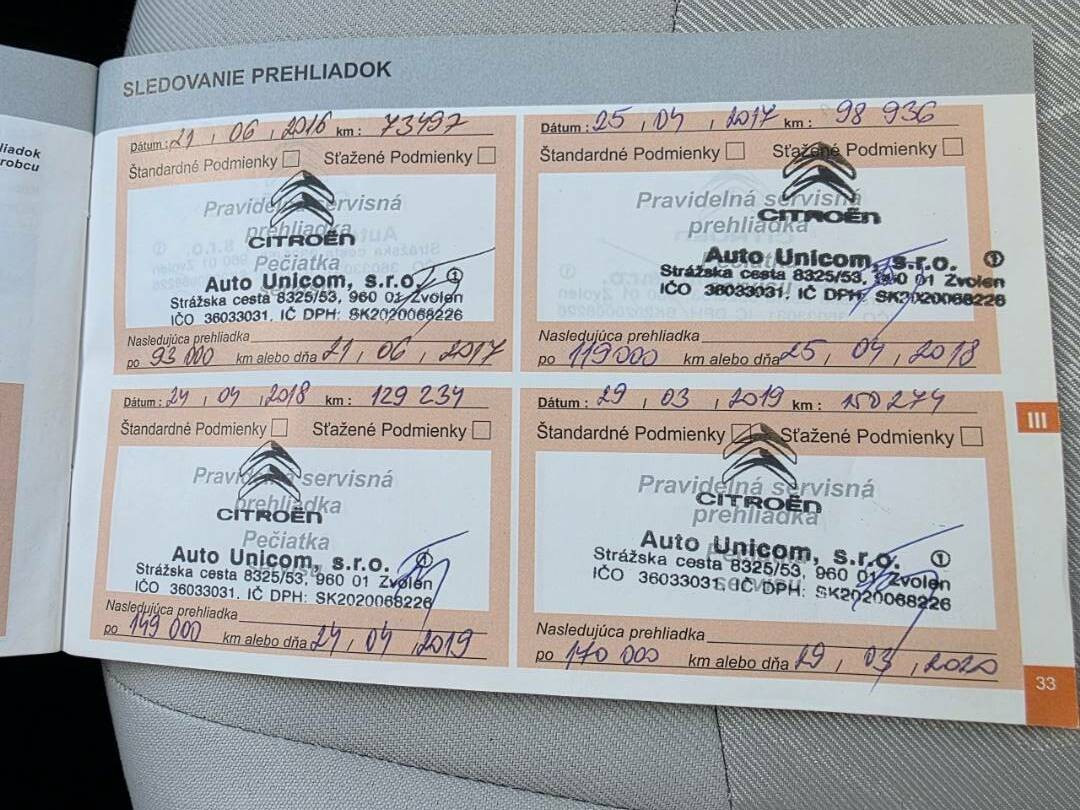 liadok
robcu
SLEDOVANIE PREHLIADOK
Dátum : 21 , 06 , 2016 km : 73497
Štandardné Podmienky Sťažené Podmienky
Pravidelná servisná
prehliadka
CITROËN
Pečiatka
Auto Unicom, s.r.o. 1
Strážska cesta 8325/53, 960 01 Zvolen
IČO 36033031, IČ DPH: SK2020068226
Nasledujúca prehliadka
po 93 000 km alebo dňa 21 , 06 , 2017
Dátum : 25 , 04 , 2017 km : 98 936
Štandardné Podmienky Sťažené Podmienky
Pravidelná servisná
prehliadka
CITROËN
Pečiatka
Auto Unicom, s.r.o. 1
Strážska cesta 8325/53, 960 01 Zvolen
IČO 36033031, IČ DPH: SK2020068226
Nasledujúca prehliadka
po 119000 km alebo dňa 25 , 04 , 2018
Dátum : 24 , 04 , 2018 km : 129 234
Štandardné Podmienky Sťažené Podmienky
Pravidelná servisná
prehliadka
CITROËN
Pečiatka
Auto Unicom, s.r.o.
Strážska cesta 8325/53, 960 01 Zvolen
IČO 36033031, IČ DPH: SK2020068226
Nasledujúca prehliadka
po 149 000 km alebo dňa 24 , 04 , 2019
Dátum : 29 , 03 , 2019 km : 150274
Štandardné Podmienky Sťažené Podmienky
Pravidelná servisná
prehliadka
CITROËN
Auto Unicom, s.r.o. 1
Strážska cesta 8325/53, 960 01 Zvolen
IČO 36033031, IČ DPH: SK2020068226
Nasledujúca prehliadka
po 170 000 km alebo dňa 29 , 03 , 2020
III
33